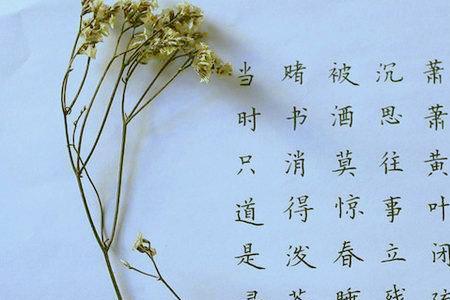 萧萧黄叶闭
沉思往事立
被酒莫惊春
赌书消得泼
当时只道是